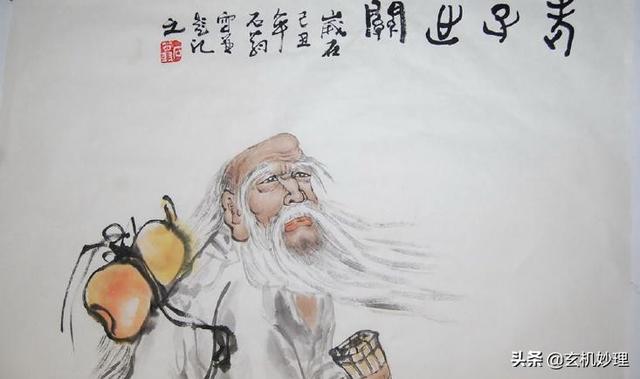 老子出關
歲在
己丑年
石
題記
之
头条 @玄机妙理